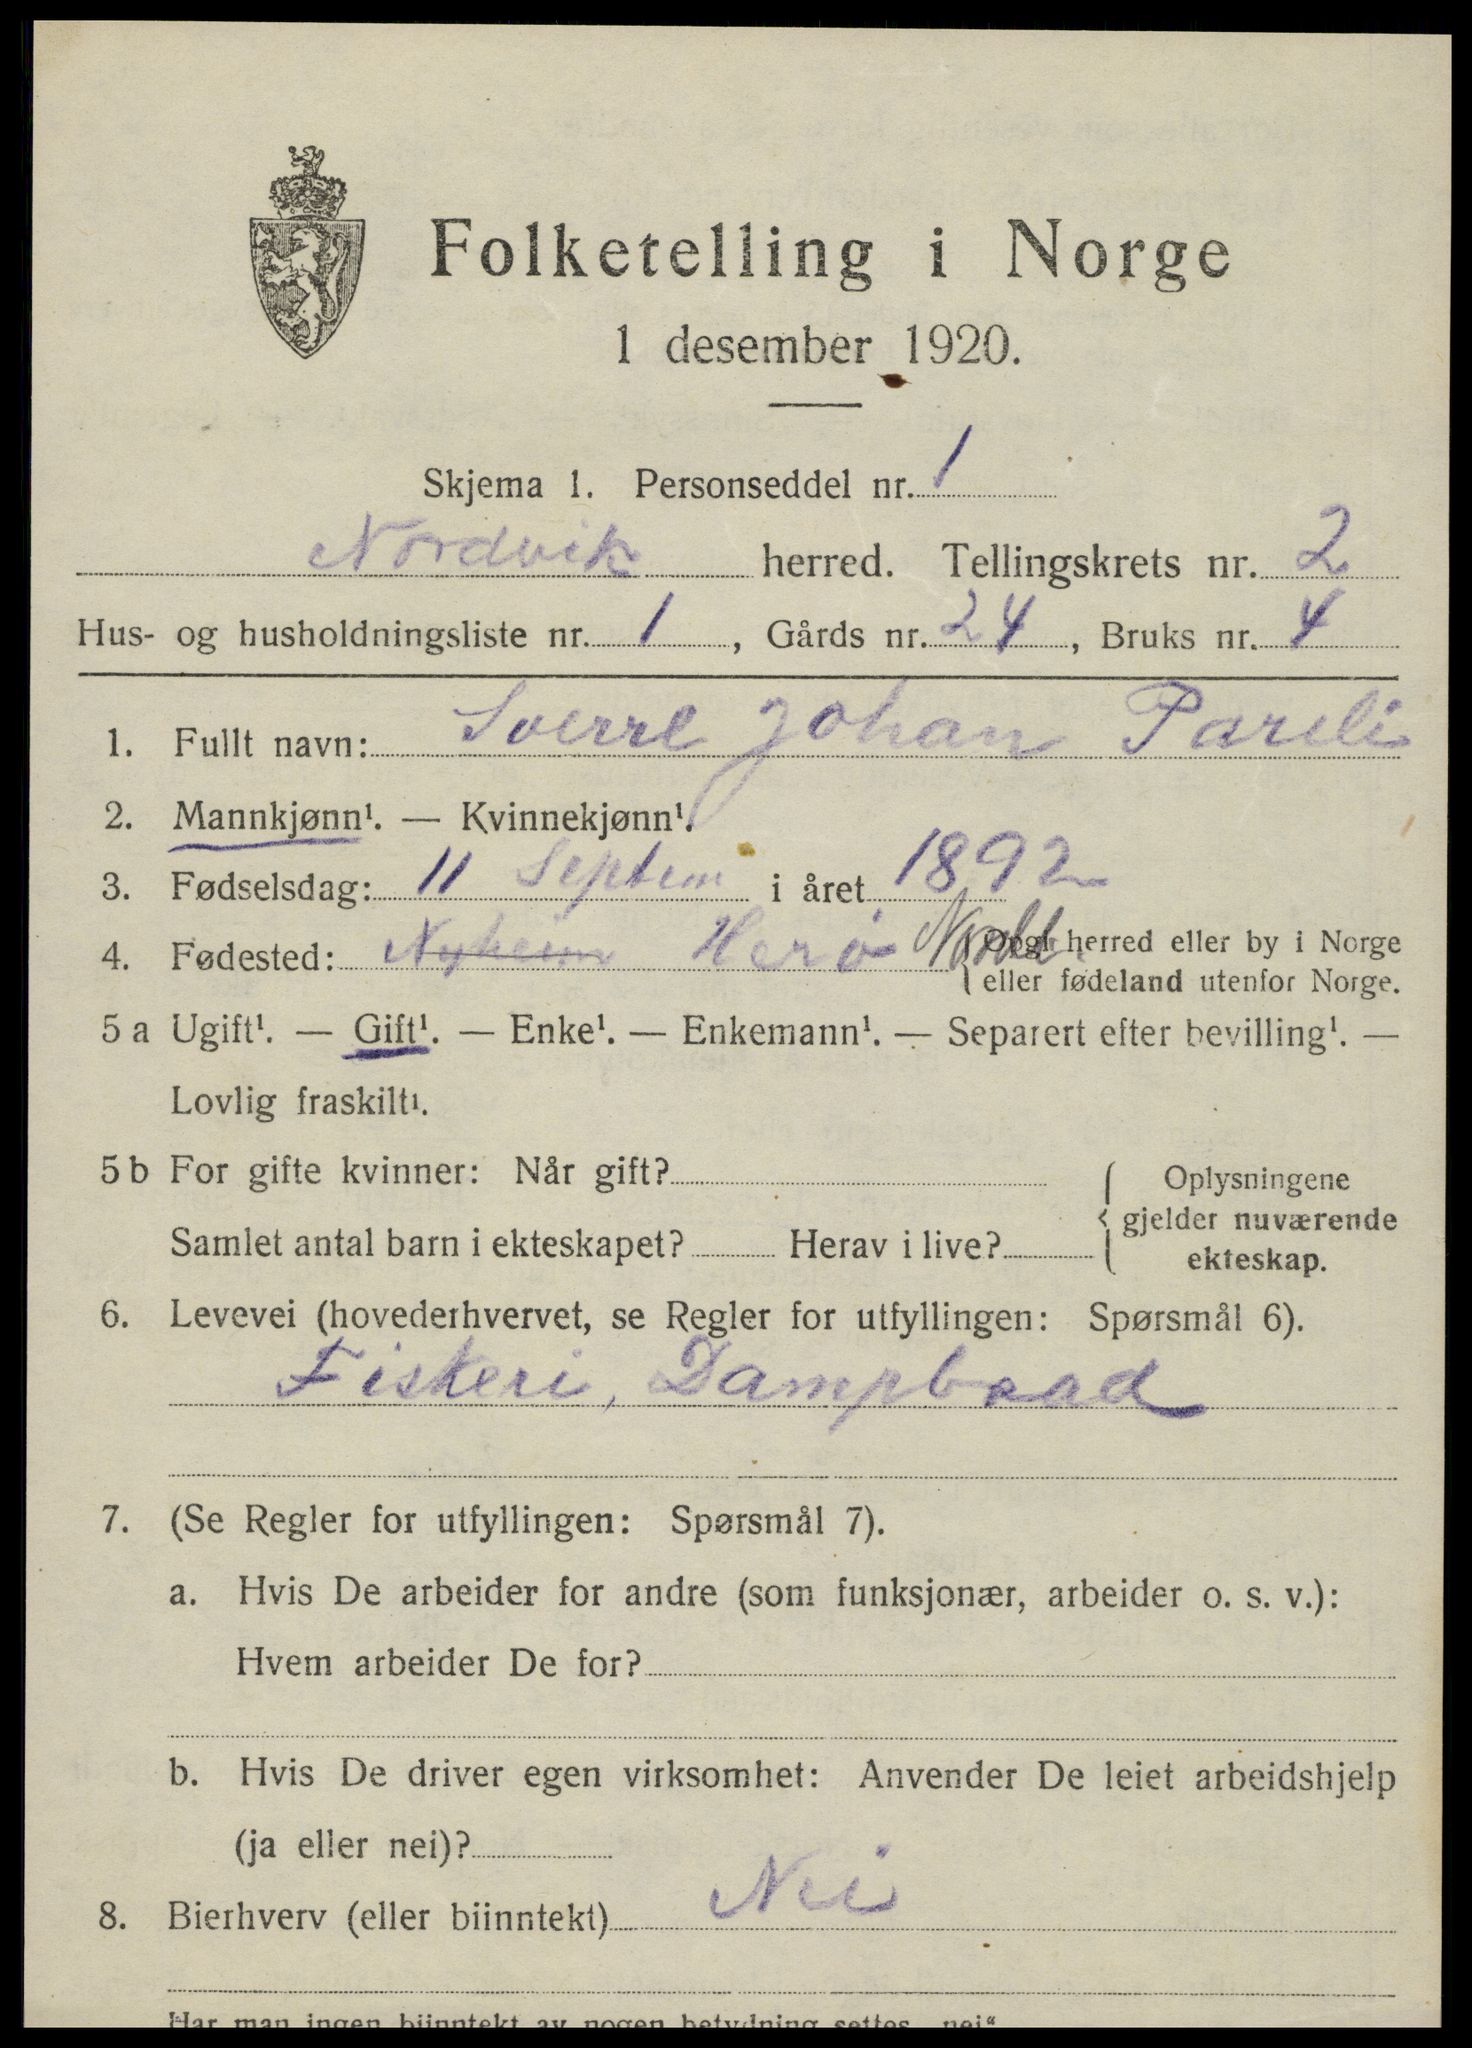 Folketelling i Norge
1 desember 1920.
Skjema 1. Personseddel nr. 1
Nordvik herred. Tellingskrets nr. 2
Hus- og husholdningsliste nr. 1, Gårds nr. 24, Bruks nr. 4
1. Fullt navn: Sverre Johan Pareli
2. Mannkjønn¹. — Kvinnekjønn¹.
3. Fødselsdag: 11 Septem i året 1892
4. Fødested: Nyheim Herø Nordl. { Opgi herred eller by i Norge
eller fødeland utenfor Norge.
5 a Ugift¹. — Gift¹. — Enke¹. — Enkemann¹. — Separert efter bevilling¹. —
Lovlig fraskilt¹.
5 b For gifte kvinner: Når gift?
Samlet antal barn i ekteskapet? Herav i live?
{ Oplysningene
gjelder nuværende
ekteskap.
6. Levevei (hovederhvervet, se Regler for utfyllingen: Spørsmål 6).
Fiskeri, Dampbaad
7. (Se Regler for utfyllingen: Spørsmål 7).
a. Hvis De arbeider for andre (som funksjonær, arbeider o. s. v.):
Hvem arbeider De for?
b. Hvis De driver egen virksomhet: Anvender De leiet arbeidshjelp
(ja eller nei)?
8. Bierhverv (eller biinntekt) Nei
Har man ingen biinntekt av nogen betydning settes „nei“